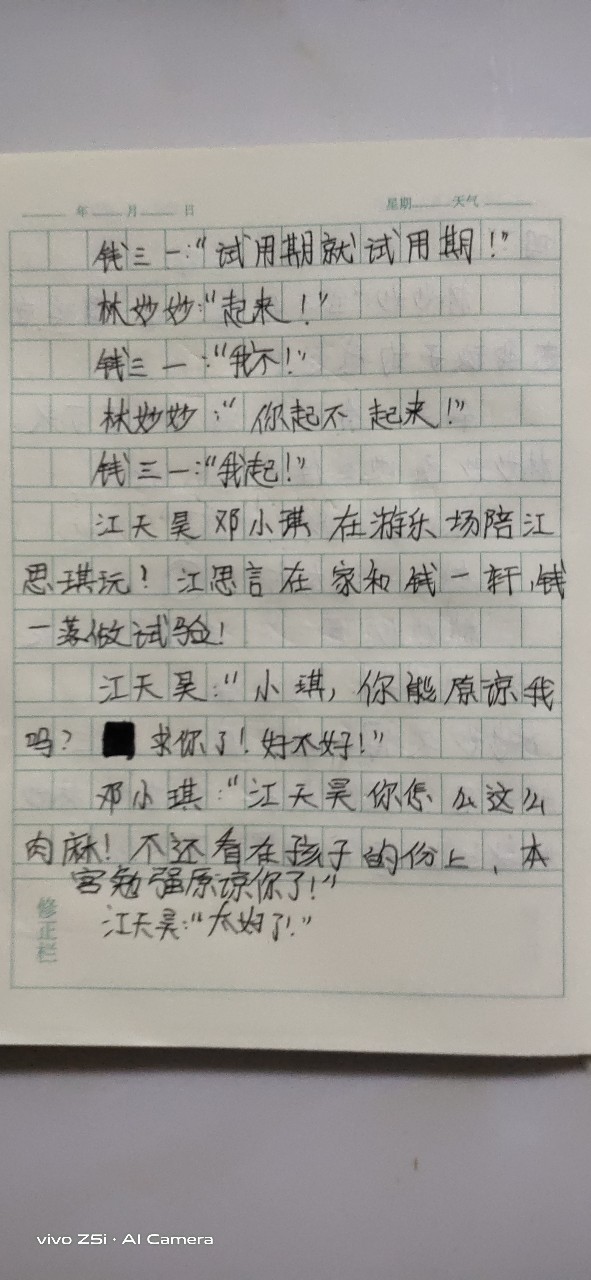 年 月 日 星期 天气
钱三一:“试用期就试用期!”
林妙妙:“起来!”
钱三一:“我不!”
林妙妙:“你起不起来!”
钱三一:“我起!”
江天昊邓小琪在游乐场陪江
思琪玩!江思言在家和钱一轩,钱
一落做试验!
江天昊:“小琪,你能原谅我
吗?求你了!好不好!”
邓小琪:“江天昊你怎么这么
肉麻!不还看在孩子的份上,本
宫勉强原谅你了!”
江天昊:“太好了!”
修正栏
vivo Z5i · AI Camera